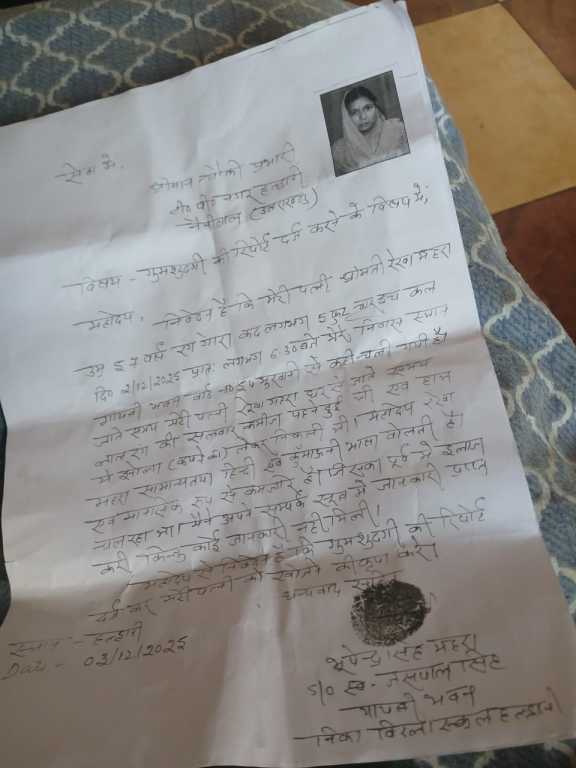 सेवा में,
श्रीमान चौकी प्रभारी
नैनीताल (उत्तराखण्ड)
विषय - गुमशुदगी की रिपोर्ट दर्ज करने के विषय में,
महोदय, निवेदन है कि मेरी पत्नी श्रीमती रेखा महरा
उम्र 57 वर्ष रंग गोरा कद लगभग 5 फुट चार इंच कल
दि० 2/12/2025 प्रातः लगभग 6:30 बजे मेरे निवास स्थान
गायत्री भवन वार्ड से कही चली गयी है।
जाते समय मेरी पत्नी रेखा महरा घर से जाते समय
लाल रंग की सलवार कमीज पहने हुई थी एवं हाथ
में झोला (कपड़े का) लेकर निकली थी। महोदय रेखा
महरा सामान्यतया हिन्दी एवं कुँमाऊनी भाषा बोलती है।
एवं मानसिक रूप से कमजोर है। जिसका पूर्व में इलाज
चल रहा था। मैने अपने सम्पर्क सूत्र में जानकारी प्राप्त
करी किन्तु कोई जानकारी नही मिली।
महोदय से निवेदन है की गुमशुदगी की रिपोर्ट
दर्ज कर मेरी पत्नी को खोजने की कृपा करें।
धन्यवाद सहित
स्थान - हल्द्वानी
Date - 03/12/2025
भूपेन्द्र सिंह महरा
S/O स्व. जसपाल सिंह
गायत्री भवन
निकट बिरला स्कूल हल्द्वानी